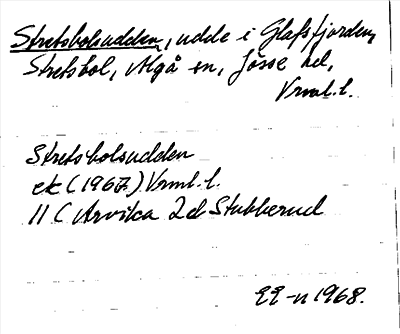 Stretsbolsudden, udde i Glafsfjorden,
Stretsbol, Älgå sn, Jösse hd,
Vrml. l.
Stretsbolsudden
ek (1967) Vrml. l.
11 C Arvika 2d Stubberud
1968.